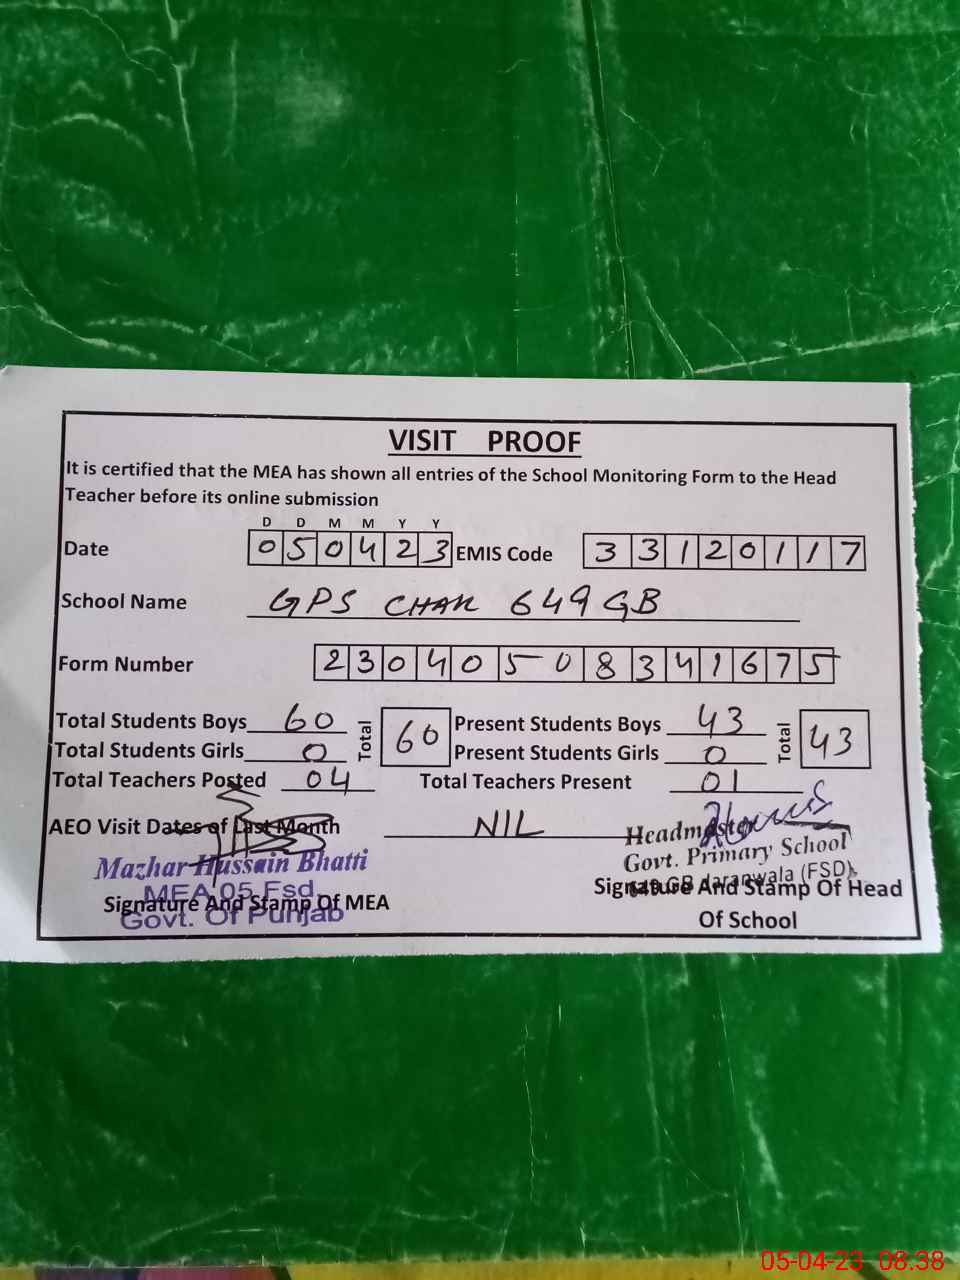 VISIT PROOF
It is certified that the MEA has shown all entries of the School Monitoring Form to the Head
Teacher before its online submission
D D M M Y Y
Date 050423 EMIS Code 33120117
School Name GPS CHAK 649 GB
Form Number 23040508341675
Total Students Boys 60 Total 60 Present Students Boys 43 Total 43
Total Students Girls 0 Present Students Girls 0
Total Teachers Posted 04 Total Teachers Present 01
AEO Visit Dates of Last Month NIL
Mazhar Hussain Bhatti
MEA 05 Fsd.
Govt. Of Punjab
Signature And Stamp Of MEA
Headmaster
Govt. Primary School
649 GB Jaranwala (FSD).
Signature And Stamp Of Head
Of School
05-04-23 08.38